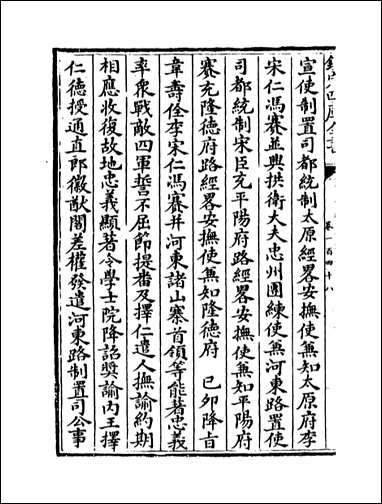 欽定四庫全書
卷一百四十八
宣使制置司都統制太原經畧安撫使兼知太原府李
宋仁馮賽並與拱衛大夫忠州團練使兼河東路置使
司都統制宋臣充平陽府路經畧安撫使兼知平陽府
賽充隆德府路經畧安撫使兼知隆德府 已卯降旨
韋壽佺李宋仁馮賽并河東諸山寨首領等能著忠義
率衆戰敵四軍誓不屈節提畨及擇仁遣人撫諭約期
相應收復故地忠義顯著令學士院降詔奬諭内王擇
仁德授通直郎徽猷閣差權發遣河東路制置司公事